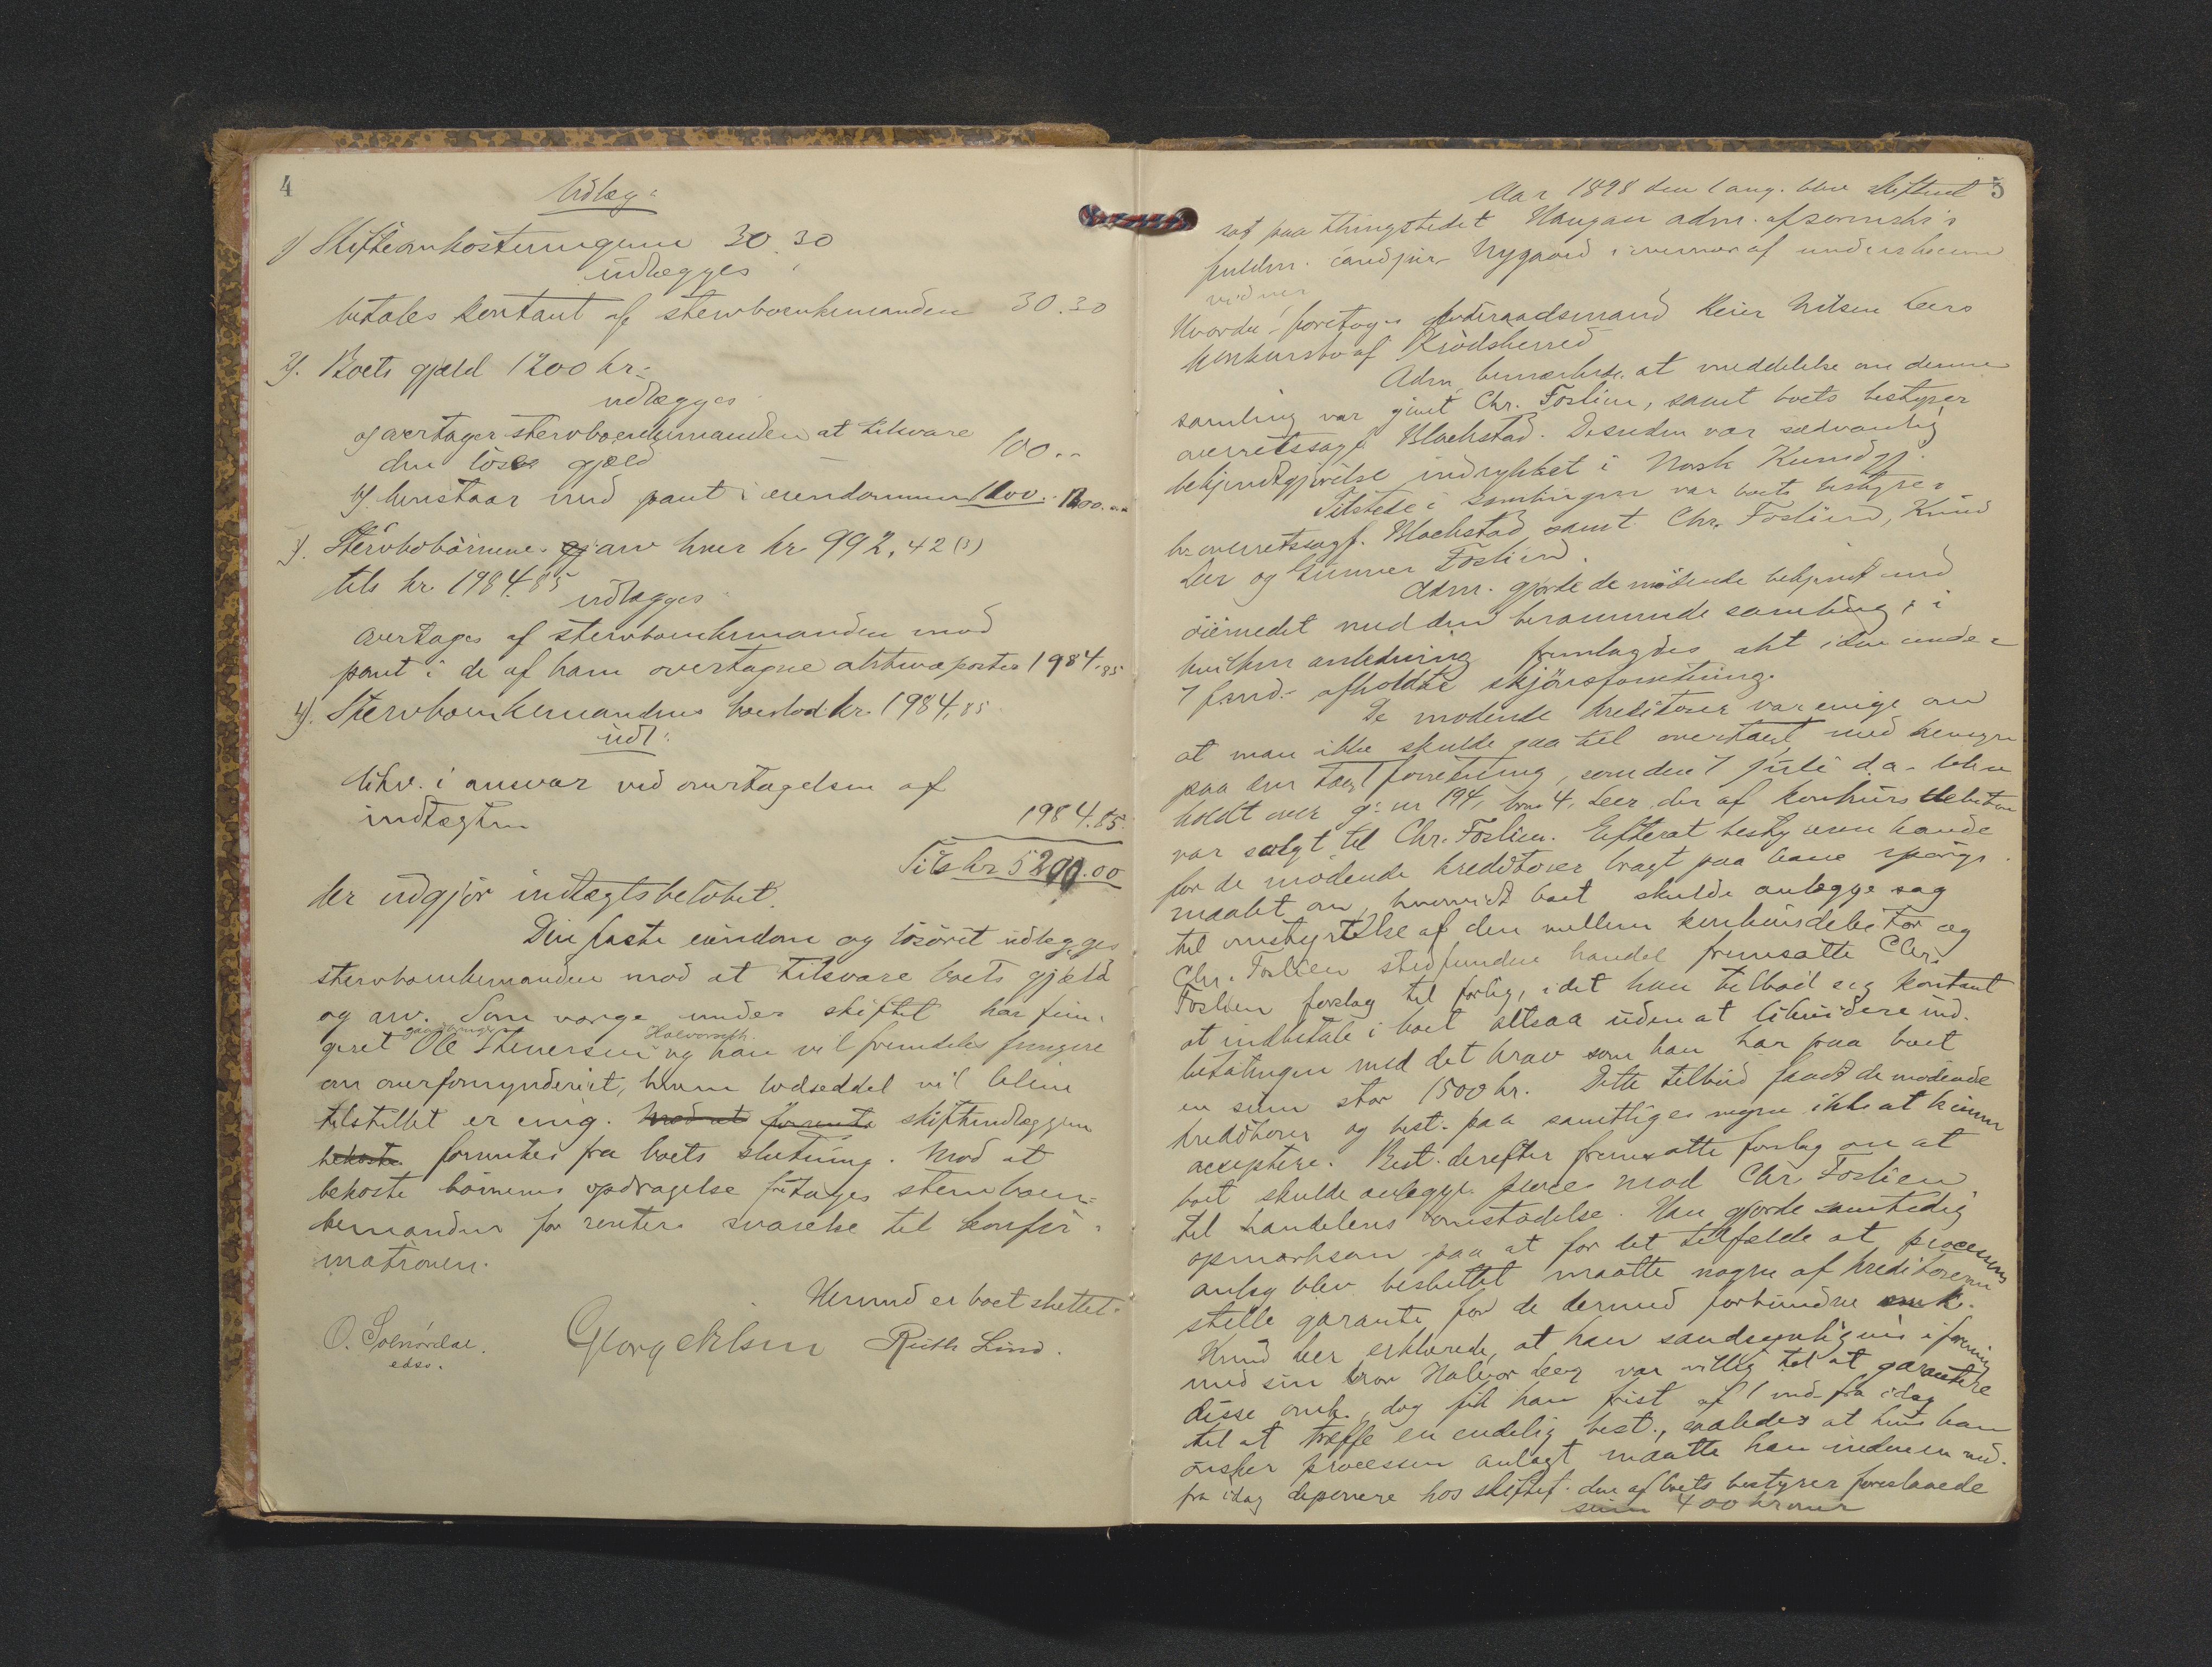 4
Udlæg:
1) Skifteomkostningerne 30.30
udlægges
betales kontant af stervboenkemanden 30.30
2). Boets gjæld 1200 kr.
udlægges
a) overtager stervboenkemanden at tilsvare
den løse gjæld – 100 ..
b) henstaar med pant i eiendommen 1100. 1200...
3). Stervbobørnene arv hver kr 992,42 (½)
tils kr. 1984.85
udlægges
overtages af stervboenkemanden mod
pant i de af ham overtagne aktivaposter 1984.85
4). Stervboenkemandens boeslod kr. 1984,85
udl:
likv. i ansvar ved overtagelsen af
indtægten 1984.85.
Tils kr 5200.00
der udgjør indtægtsbeløbet.
Den faste eiendom og løsøret udlægges
stervboenkemanden mod at tilsvare boets gjæld
og arv. Som værge under skiftet har fun-
geret gaardbruger Ole Steversen Halvorseth og han vil fremdeles fungere
om overformynderiet, hvem lodseddel vil blive
tilstillet er enig. Mod at forrente skifteudlæggene
bekoste forrentes fra boets slutning. Mod at
bekoste børnenes opdragelse fritages stervboen-
kemanden for renters svarelse til konfir-
mationen.
Hermed er boet sluttet.
O. Solnørdal.
edsv.
Georg Nelsen
Ruth Lind.
5
Aar 1898 den 1 aug. blev skifteret
sat paa thingstedet Haugan adm. af sorenskr's
fuldm. cand jur. Nygaard i nærvær af underskrevne
vidner
Hvorda foretoges foderaadsmand Reier Nilsen Leers
konkursbo af Krødsherred
Adm. bemærkede at meddelelse om denne
samling var givet Chr. Foslien, samt boets bestyrer
overretssagf Blackstad. Desuden var sædvanlig
bekjendtgjørelse indrykket i Norsk Kundgj.
Tilstede i samlingen var boets bestyrer
hr. overretssagf. Blackstad samt Chr. Foslien, Knud
Leer og Gunner Foslien.
Adm. gjorde de mødende bekjendt med
øiemedet med den berammede samling, i
hvilken anledning fremlagdes akt i den under
7 f.md. afholdte skjønsforretning.
De mødende kreditorer var enige om
at man ikke skulde gaa til overtagst med hensyn
paa den tagstforretning, som den 7 juli d.a. blev
holdt over g. nr 194, brn 4, Leer der af konkursdebitor
var solgt til Chr. Foslien. Efterat bestyreren havde
for de mødende kreditorer bragt paa bane spørgs-
maalet om, hvorvidt boet skulde anlægge sag
til omstyrtelse af den mellem konkursdebitor og
Chr. Foslien stedfundne handel fremsatte Chr.
Foslien forslag til forlig, idet han tilbød sig kontant
at indbetale i boet altsaa uden at likvidere ind-
betalingen med det krav som han har paa boet
en sum stor 1500 kr. Dette tilbud fandt de mødende
kreditorer og best. paa samtliges vegne ikke at kunne
acceptere. Best. derefter fremsatte forslag om at
boet skulde anlægge proces mod Chr Foslien
til handelens omstødelse. Han gjorde samtidig
opmærksom paa at for det tilfælde at processens
anlæg blev besluttet maatte nogen af kreditorerne
stille garanti for de dermed forbundne omk.
Knud Leer erklærede, at han sandsynligvis i forening
med sin bror Halvor Leer var villig til at garantere
disse omk., dog fik han frist af 1 md. fra idag
til at træffe en endelig best., saaledes at hvis han
ønsker processen anlagt maatte han inden en md.
fra idag deponere hos skiftef. den af boets bestyrer foreslaaede
sum 400 kroner